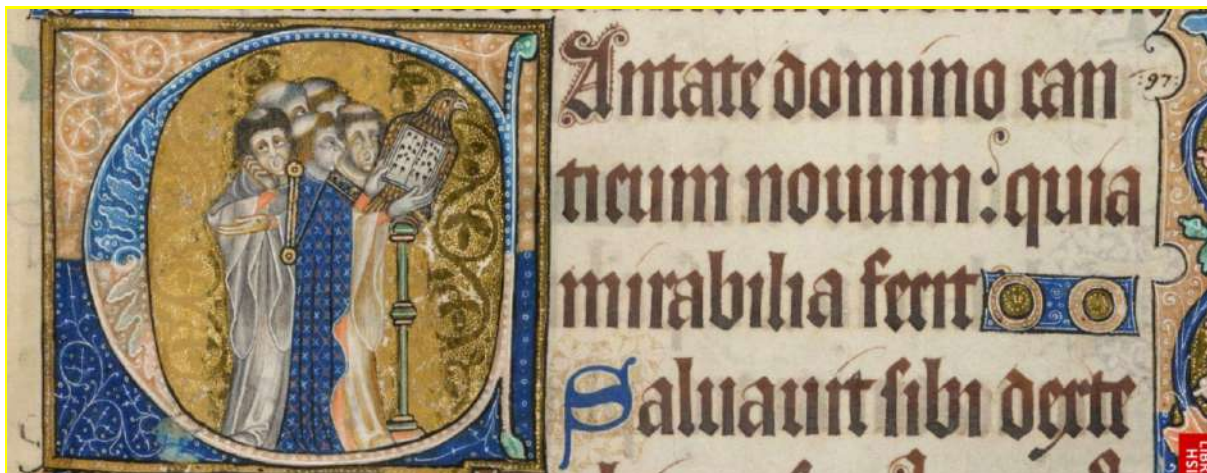 Antate domino can
:97:
ticum nouum: quia
mirabilia fecit
Saluauit sibi dexte